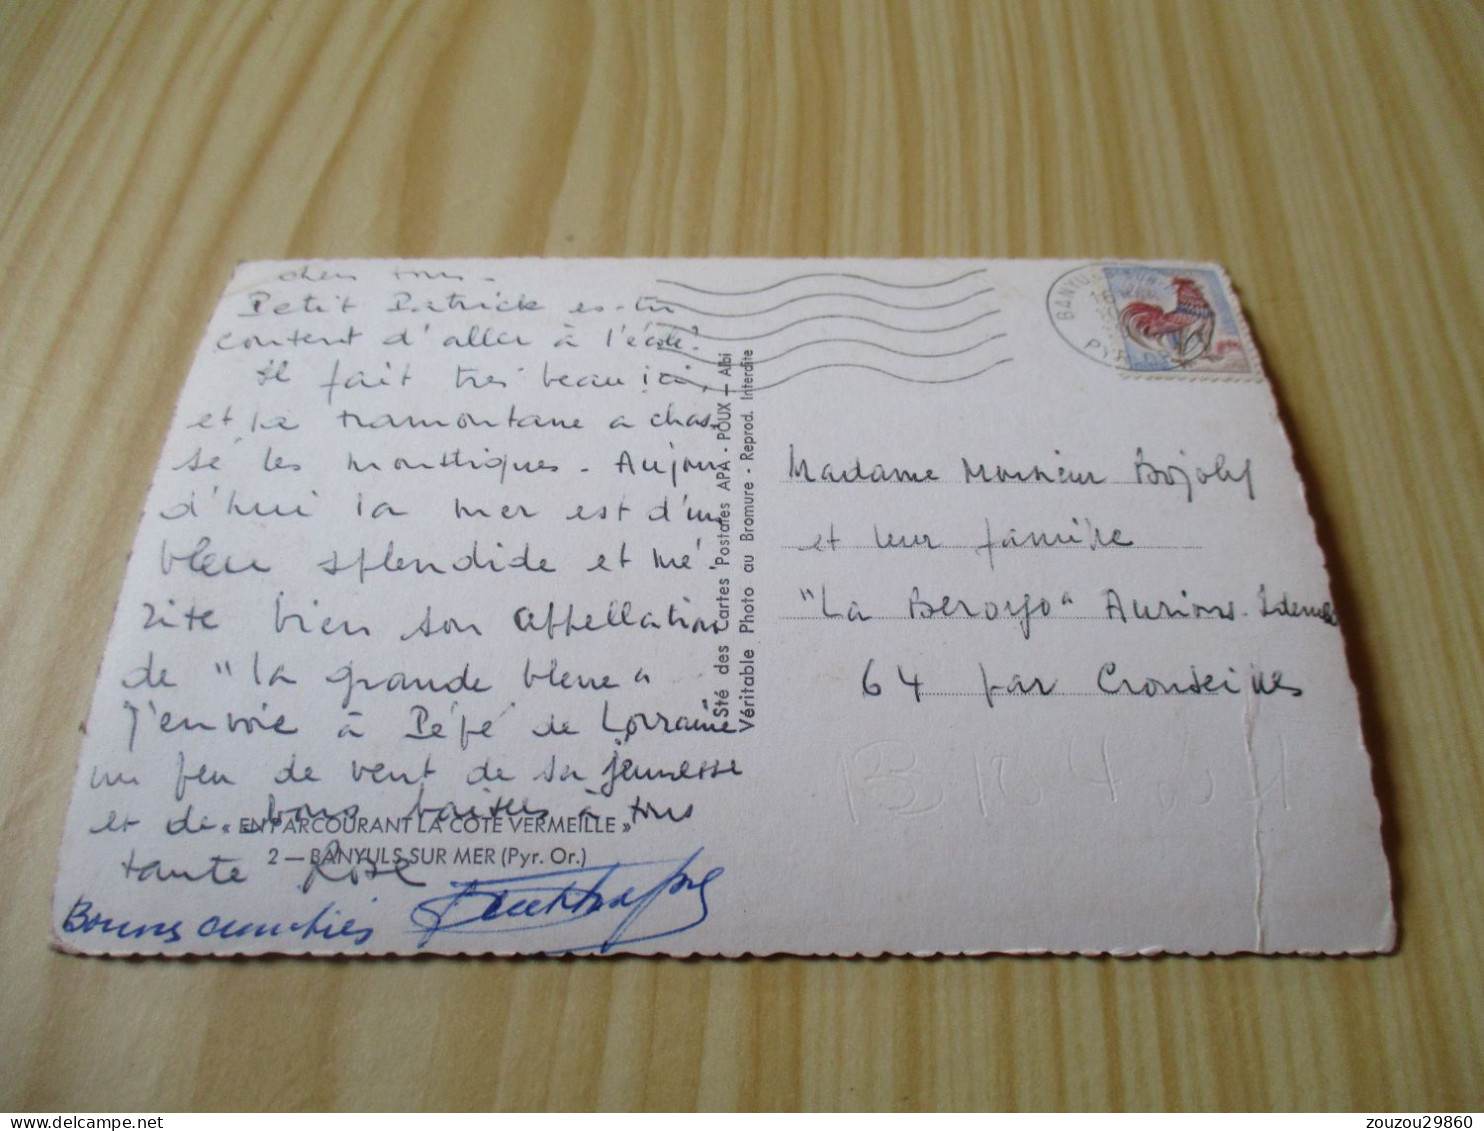 chers tous -
Petit Patrick es-tu
content d'aller à l'école?
Il fait très beau ici,
et la tramontane a chas-
sé les moustiques - Aujour
d'hui la mer est d'un
bleu splendide et mé-
rite bien son appellation
de "la grande bleue"
J'envoie à Pépé de Lorraine
un peu de vent de sa jeunesse
et de bons baisers à tous
tante Rose
Bonnes amitiés
« EN PARCOURANT LA COTE VERMEILLE »
2 — BANYULS SUR MER (Pyr. Or.)
Sté des Cartes Postales APA - POUX — Albi
Véritable Photo au Bromure - Reprod. Interdite
BANYULS
PYR. OR.
Madame Monsieur
et leur famille
"La Beroyo"
64 par Cronseilles
zouzou29860